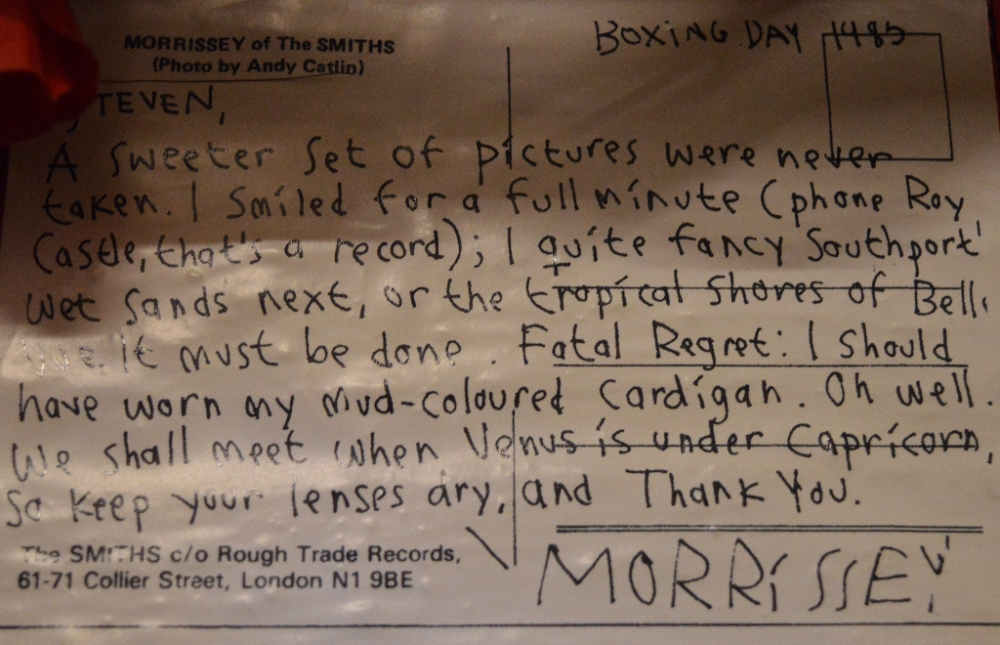 MORRISSEY of The SMITHS
(Photo by Andy Catlin)
BOXING DAY 1985
TEVEN,
A sweeter set of pictures were never
taken. I smiled for a full minute (phone Roy
Castle, that's a record); I quite fancy Southport'
wet sands next, or the tropical shores of Bell
vue. It must be done. Fatal Regret: I should
have worn my mud-coloured cardigan. Oh well.
We shall meet when Venus is under Capricorn,
So keep your lenses dry, and Thank You.
MORRISSEY
The SMITHS c/o Rough Trade Records,
61-71 Collier Street, London N1 9BE